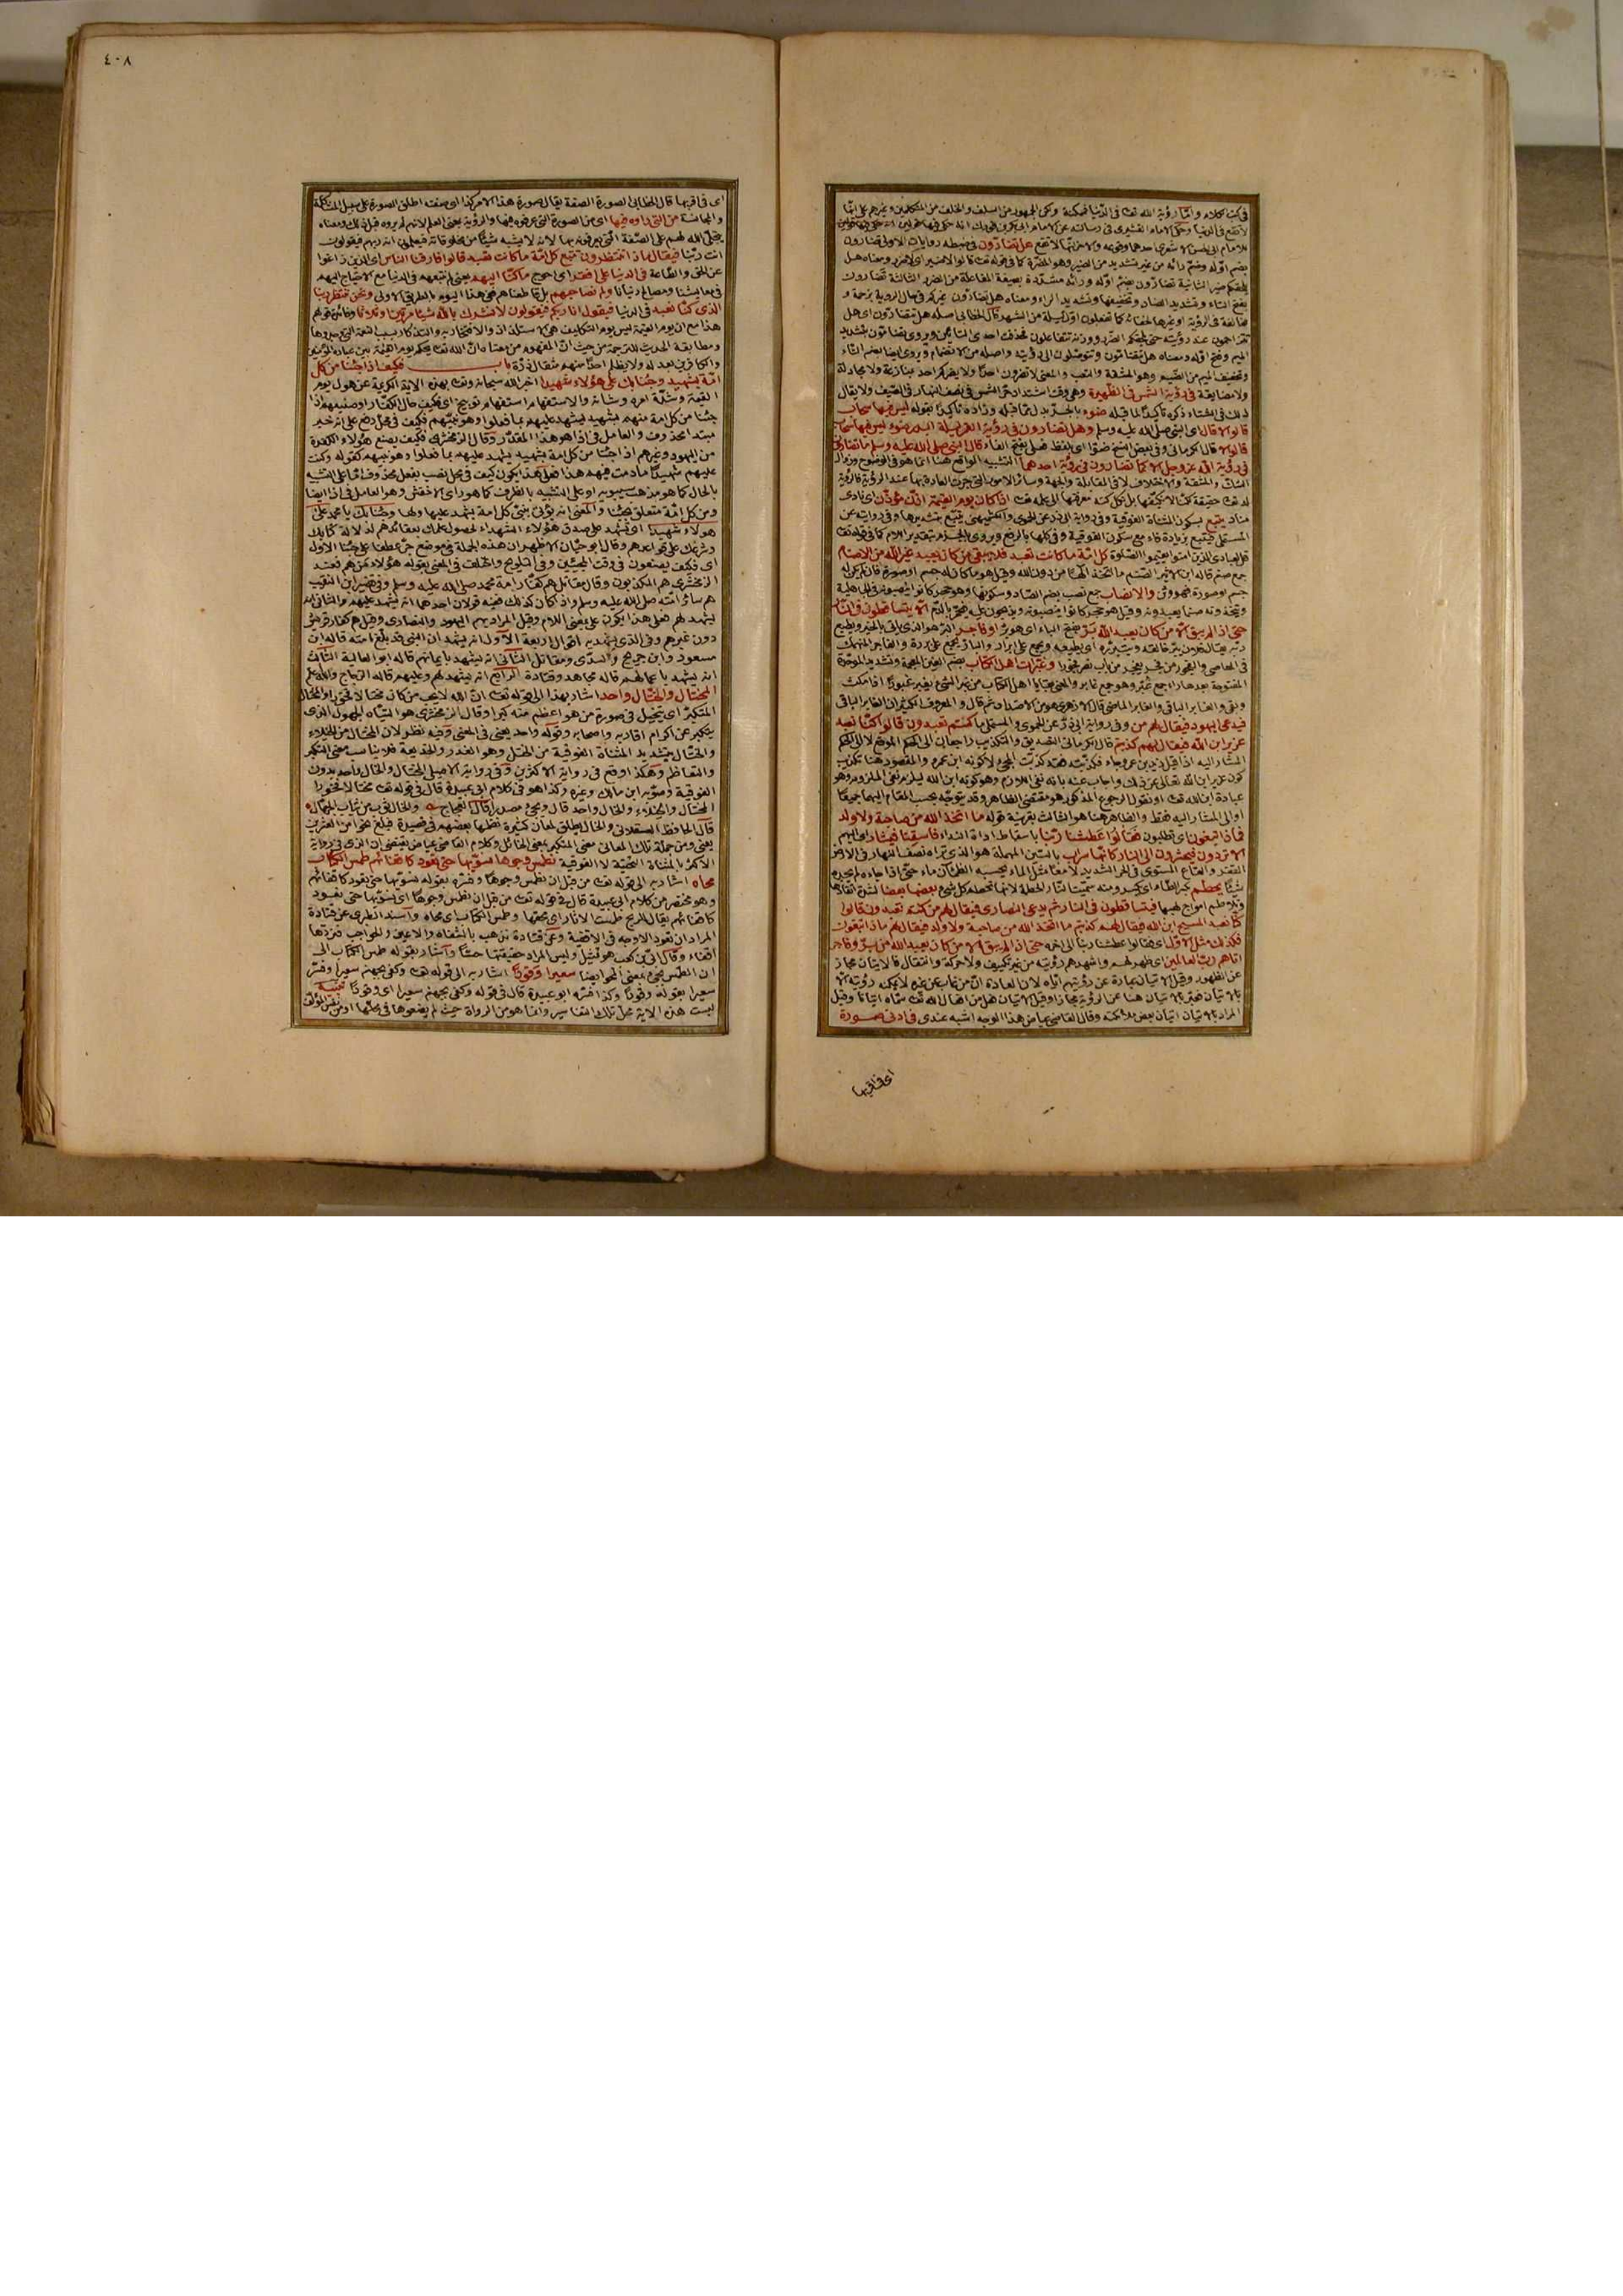 في كتب الكلام واما رؤية الله تعـ في الدنيا فممكنة ولكن الجمهور من السلف والخلف من المتكلمين وغيرهم على انها
لا تقع في الدنيا وحكى الامام القشيري في رسالته عن الامام ابي بكر بن فورك انه حكى فيها قولين
بضم اوله وضم رائه من غير تشديد من الضير وهو المضرة كما في قوله تعـ قالوا لا ضير اي لا ضرر ومعناه هل
يلحقكم ضير الثانية تضارّون بضم اوله ورائه مشددة بصيغة المفاعلة من الضرر الثالثة تضارون
بفتح التاء وتشديد الضاد وتخفيفها وتشديد الراء ومعناه هل تضارون غيركم في حال الرؤية بزحمة و
مخالفة في الرؤية او غيرها لخفائه كما تفعلون اول ليلة من الشهر قال الخطابي اصله هل تتضارون اي هل
تتزاحمون عند رؤيته حتى يلحقكم الضرر ووزنه تتفاعلون فحذفت احدى التائين ويروى تضامون بتشديد
الميم وفتح اوله ومعناه هل تتضامون وتتوصلون الى رؤيته واصله من الانضمام ويروى ايضا بضم التاء
وتخفيف الميم من الضيم وهو المشقة والتعب والمعنى لا تضرون احدا ولا يضركم احد بمنازعة ولا مجادلة
ولا مضايقة في رؤية الشمس في الظهيرة وهي وقت اشتداد حر الشمس في نصف النهار في الصيف ولا يقال
ذلك في الشتاء ذكره تأكيدا لما قبله ضوء بالجر بدل مما قبله وزاده تأكيدا بقوله ليس فيها سحاب
قالوا لا قال اي النبي صلى الله عليه وسلم وهل تضارون في رؤية القمر ليلة البدر ضوء ليس فيها سحاب
قالوا لا قال الكرماني وفي بعض النسخ ضوأ اي بلفظ فعلى بفتح الفاء قال النبي صلى الله عليه وسلم ما تضارون
في رؤية الله عز وجل الا كما تضارون في رؤية احدهما التشبيه الواقع هنا انما هو في الوضوح وزوال
الشك والمشقة والاختلاف لا في المقابلة والجهة وسائر الامور التي جرت العادة بها عند الرؤية فالرؤية
له تعـ حقيقة لكنا لا نكيفها بل نكل كنه معرفتها الى علمه تعـ اذا كان يوم القيمة اذن مؤذن اي نادى
مناد يتبع بسكون المثناة الفوقية وفي رواية ابي ذر عن الحموي والكشميهني يتبع بتشديدها وفي رواية عن
المستملي فيتبع بزيادة فاء مع سكون الفوقية وفي كلها بالرفع ويروى بالجزم بتقدير اللام كما في قوله تعـ
قل لعبادي الذين امنوا يقيموا الصلوة كل امة ما كانت تعبد فلا يبقى من كان يعبد غير الله من الاصنام
جمع صنم قاله ابن الاثير الصنم ما اتخذ الها من دون الله وقيل هو ما كان له جسم او صورة فان لم يكن له
جسم او صورة فهو وثن والانصاب جمع نصب بضم الصاد وسكونها وهو حجر كانوا ينصبونه في الجاهلية
ويتخذونه صنما يعبدونه وقيل هو حجر كانوا ينصبونه ويذبحون عليه فيحمر بالدم الا يتساقطون في النار
حتى اذا لم يبق الا من كان يعبد الله بر بفتح الباء اي هو بر او فاجر
في المعاصي والفجور من فجر يفجر من باب نصر فجورا وغبرات اهل الكتاب بضم الغين المعجمة وتشديد الموحدة
المفتوحة بعدها راء جمع غبر وهو جمع غابر والمعنى بقايا اهل الكتاب من غبر الشيء يغبر غبورا اذا مكث
وبقي والغابر الباقي والغابر الماضي قال الازهري هو من الاضداد ثم قال والمعروف الكثير ان الغابر الباقي
فيدعى اليهود فيقال لهم من وفي رواية ابي ذر عن الحموي والمستملي ما كنتم تعبدون قالوا كنا نعبد
عزير ابن الله فيقال لهم كذبتم قال الكرماني التصديق والتكذيب راجعان الى الحكم الموقع لا الى الحكم
المشار اليه اذا قيل زيد بن عمرو جاء فكذبته فقد كذبت المجيء لا كونه ابن عمرو والمقصود هنا تكذيب
كون عزير ابن الله تعالى عن ذلك واجاب عنه بانه نفي اللازم وهو كونه ابن الله ليلزم نفي الملزوم وهو
عبادة ابن الله تعـ او نقول الرجوع المذكور هو مقتضى الظاهر وقد يتوجه بحسب المقام اليهما جميعا
او الى المشار اليه فقط والظاهر هنا هو الثالث بقرينة قوله ما اتخذ الله من صاحبة ولا ولد
فماذا تبغون اي تطلبون فقالوا عطشنا ربنا باسقاط اداة النداء فاسقنا فيشار اي اليهم
الا تردون فيحشرون الى النار كانها سراب بالسين المهملة هو الذي تراه نصف النهار في الارض
القفر والقاع المستوي في الحر الشديد لامعا مثل الماء يحسبه الظمآن ماء حتى اذا جاءه لم يجده
شيئا يحطم بكسر الطاء اي يكسر ومنه سميت النار الحطمة لانها تحطم كل شيء بعضها بعضا لشدة اتقادها
وتلاطم امواج لهبها فيتساقطون في النار ثم يدعى النصارى فيقال لهم من كنتم تعبدون قالوا
كنا نعبد المسيح ابن الله فيقال لهم كذبتم ما اتخذ الله من صاحبة ولا ولد فيقال لهم ماذا تبغون
فكذلك مثل الاول اي فقالوا عطشنا ربنا الى اخره حتى اذا لم يبق الا من كان يعبد الله من بر وفاجر
اتاهم رب العالمين اي ظهر لهم واشهدهم رؤيته من غير تكييف ولا حركة وانتقال فالاتيان مجاز
عن الظهور وقيل الاتيان عبارة عن رؤيتهم اياه لان العادة ان من غاب عن غيره لا يمكنه رؤيته الا
بالاتيان فعبر بالاتيان هنا عن الرؤية مجازا وقيل الاتيان فعل من افعال الله تعـ سماه اتيانا وقيل
المراد بالاتيان اتيان بعض ملائكته وقال القاضي عياض هذا الوجه اشبه عندي في ادنى صورة
اي في اقربها
٤٠٨
اي في اقربها قال الخطابي الصورة الصفة يقال صورة هذا الامر كذا اي صفته او اطلق الصورة على سبيل المشاكلة
والمجانسة من التي رأوه فيها اي من الصورة التي عرفوه فيها والرؤية بمعنى العلم لانهم لم يروه قبل ذلك ومعناه
يتجلى الله لهم على الصفة التي يعرفونه بها لانه لا يشبه شيئا من مخلوقاته فيعلمون انه ربهم فيقولون
انت ربنا فيقال ماذا تنتظرون تتبع كل امة ما كانت تعبد قالوا فارقنا الناس اي الذين زاغوا
عن الحق والطاعة في الدنيا على افقر اي احوج ما كنا اليهم يعني لم نتبعهم في الدنيا مع الاحتياج اليهم
في معايشنا ومصالح دنيانا ولم نصاحبهم بل قاطعناهم ففي هذا اليوم بالطريق الاولى ونحن ننتظر ربنا
الذي كنا نعبد في الدنيا فيقول انا ربكم فيقولون لا نشرك بالله شيئا مرتين او ثلاثا وفائدة قولهم
هذا مع ان يوم القيمة ليس يوم التكليف هي الاستلذاذ والافتخار به والتذكار بسبب النعمة التي وجدوها
ومطابقة الحديث للترجمة من حيث ان المفهوم من معناه ان الله تعـ يحكم يوم القيمة بين عباده المؤمنين
والكافرين بعدله ولا يظلم احدا منهم مثقال ذرة باب فكيف اذا جئنا من كل
امة بشهيد وجئنا بك على هؤلاء شهيدا اخبر الله سبحانه وتعـ بهذه الاية الكريمة عن هول يوم
القيمة وشدة امره وشانه والاستفهام استفهام توبيخ اي فكيف حال الكفار او صنيعهم اذا
جئنا من كل امة منهم بشهيد يشهد عليهم بما فعلوا وهو نبيهم فكيف في محل رفع على انه خبر
مبتدأ محذوف والعامل في اذا هو هذا المقدر وقال الزمخشري فكيف يصنع هؤلاء الكفرة
من اليهود وغيرهم اذا جئنا من كل امة بشهيد يشهد عليهم بما فعلوا وهو نبيهم كقوله وكنت
عليهم شهيدا ما دمت فيهم هذا فعلى هذا يكون كيف في محل نصب بفعل محذوف اما على التشبيه
بالحال كما هو مذهب سيبويه او على التشبيه بالظرف كما هو رأي الاخفش وهو العامل في اذا ايضا
ومن كل امة متعلق بجئنا والمعنى انه يؤتى بنبي كل امة يشهد عليها ولها وجئنا بك يا محمد على
هؤلاء شهيدا اي تشهد على صدق هؤلاء الشهداء لحصول علمك بعقائدهم لدلالة كتابك
وشرعك على قواعدهم وقال ابو حيان الاظهر ان هذه الجملة في موضع جر عطفا على جئنا الاول
اي فكيف يصنعون في وقت المجيئين وفي التلويح واختلف في المعني بقوله هؤلاء من هم فعند
الزمخشري هم المكذبون وقال مقاتل هم كفار امة محمد صلى الله عليه وسلم وفي تفسير ابن النقيب
هم سائر امته صلى الله عليه وسلم واذا كان كذلك ففيه قولان احدهما انه يشهد عليهم والثاني انه
يشهد لهم فعلى هذا يكون على بمعنى اللام وقيل المراد بهم اليهود والنصارى وقيل هم كفار قريش
دون غيرهم وفي الذي يشهد به اقوال اربعة الاول انه يشهد ان النبي قد بلغ امته قاله ابن
مسعود وابن جريج والسدي ومقاتل الثاني انه يشهد بايمانهم قاله ابو العالية الثالث
انه يشهد باعمالهم قاله مجاهد وقتادة الرابع انه يشهد لهم وعليهم قاله الزجاج والله اعلم
المختال والختال واحد اشار بهذا الى قوله تعـ ان الله لا يحب من كان مختالا فخورا والمختال
المتكبر اي يتخيل في صورة من هو اعظم منه كبرا وقال الزمخشري هو التياه الجهول الذي
يتكبر عن اكرام اقاربه واصحابه وقوله واحد يعني في المعنى وفيه نظر لان المختال من الخيلاء
والختال بتشديد المثناة الفوقية من الختل وهو الغدر والخديعة فلا يناسب معنى التكبر
والتعاظم وهكذا وقع في رواية الاكثرين وفي رواية الاصيلي المختال والخال واحد بدون
الفوقية وصوبه ابن مالك وغيره وكذا هو في كلام ابي عبيدة قال في قوله تعـ مختالا فخورا
المختال والخيلاء والخال واحد قال ويجيء مصدرا قال العجاج والخال ثوب من ثياب الجهال
قال الحافظ العسقلاني والخال يطلق لمعان كثيرة نظمها بعضهم في قصيدة فبلغ نحوا من العشرين
يعني ومن جملة تلك المعاني معنى المتكبر بمعنى الخائل وكلام القاضي عياض يقتضي ان الذي في رواية
الاكثر بالمثناة التحتية لا الفوقية نطمس وجوها نسويها حتى تعود كاقفائهم طمس الكتاب
محاه اشار به الى قوله تعـ من قبل ان نطمس وجوها وفسره بقوله نسويها حتى تعود كاقفائهم
وهو مختصر من كلام ابي عبيدة قال في قوله تعـ من قبل ان نطمس وجوها اي نسويها حتى تعود
كاقفائهم يقال للريح طمست الاثار اي محتها وطمس الكتاب اي محاه واسند الطبري عن قتادة
المراد ان تعود الاوجه في الاقفية وعن قتادة تذهب بالشفاه والاعين والحواجب فتردها
اقفاء وقال ابي بن كعب هو تمثيل وليس المراد حقيقتها حسا واشار بقوله طمس الكتاب الى
ان الطمس يجيء بمعنى المحو ايضا سعيرا وقودا اشار به الى قوله تعـ وكفى بجهنم سعيرا وفسر
سعيرا بقوله وقودا وكذا فسره ابو عبيدة قال في قوله وكفى بجهنم سعيرا اي وقودا تنبيه
ليست هذه الاية محل تلك التفاسير وانما هو من الرواة حيث لم يضعوها في محلها او من نفس المؤلف